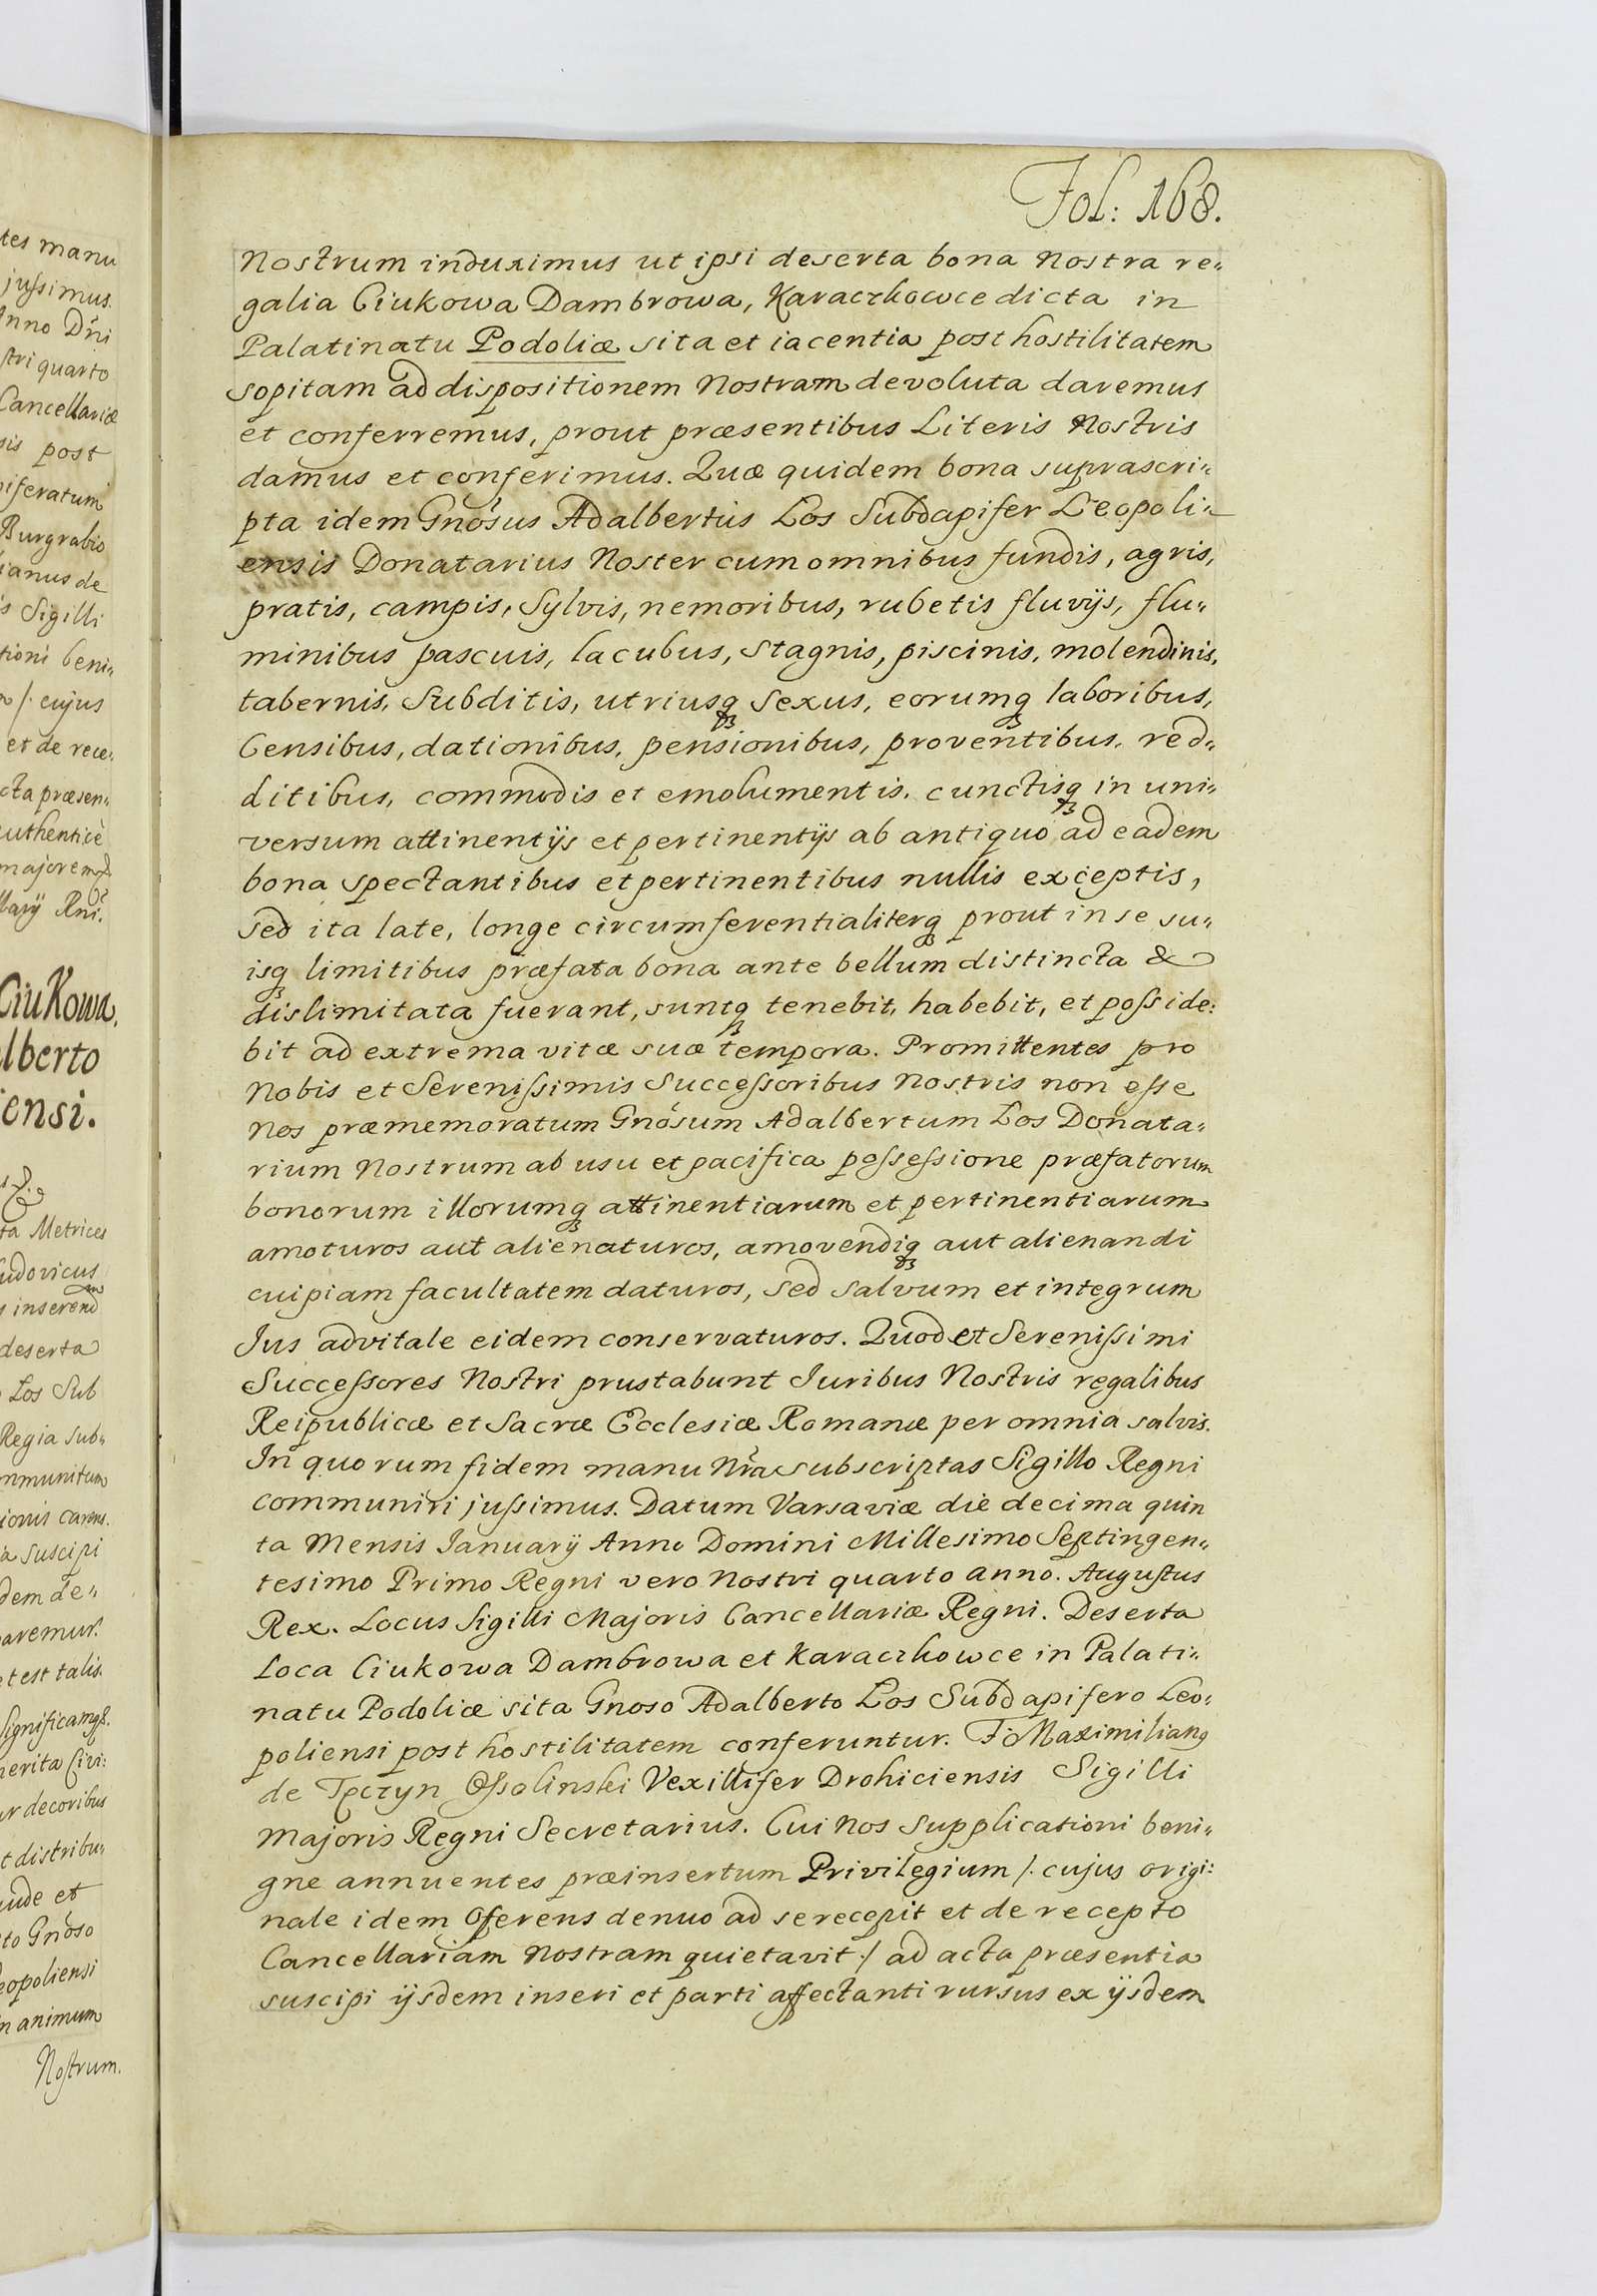 tes manu
jussimus.
Anno Dni
stri quarto
Cancellariæ
sis post
piferatum
Burgrabio
ianus de
is Sigilli
tioni beni„
/. cujus
et de rece„
cta præsen„
authenticè
majoremq
llarij Rni.
Ciukowa,
alberto
iensi.
ta Metrices
Ludovicus
inserend
deserta
Los Sub
Regia sub„
mmunitum
ionis carens.
ia suscipi
dem de„
aremur.
et est talis.
Significamq.
merita Civi:
ur decoribus
t distribu„
inde et
to Gnoso
Leopoliensi
in animum
Nostrum.
Fol: 168.
Nostrum induximus ut ipsi deserta bona nostra re„
galia Ciukowa Dambrowa, Karaczkowce dicta in
Palatinatu Podoliæ sita et iacentia post hostilitatem
sopitam ad dispositionem Nostram devoluta daremus
et conferremus, prout præsentibus Literis Nostris
damus et conferimus. Quæ quidem bona suprascri„
pta idem Gnosus Adalbertus Los Subdapifer Leopoli„
ensis Donatarius Noster cum omnibus fundis, agris,
pratis, campis, Sylvis, nemoribus, rubetis fluvijs, flu„
minibus pascuis, lacubus, stagnis, piscinis, molendinis,
tabernis, Subditis, utriusq sexus, eorumq laboribus,
Censibus, dationibus, pensionibus, proventibus, red„
ditibus, commodis et emolumentis, cunctisq in uni„
versum attinentijs et pertinentijs ab antiquo ad eadem
bona spectantibus et pertinentibus nullis exceptis,
sed ita late, longe circumferentialiterq prout in se su„
isq limitibus præfata bona ante bellum distincta &
dislimitata fuerant, suntq tenebit, habebit, et posside:
bit ad extrema vitæ suæ tempora. Promittentes pro
Nobis et Serenissimis Successoribus Nostris non esse
Nos præmemoratum Gnosum Adalbertum Los Donata„
rium Nostrum ab usu et pacifica possessione præfatorum
bonorum illorumq attinentiarum et pertinentiarum
amoturos aut alienaturos, amovendiq aut alienandi
cuipiam facultatem daturos, sed salvum et integrum
Ius advitale eidem conservaturos. Quod et Serenissimi
Successores Nostri prustabunt Iuribus Nostris regalibus
Reipublicæ et Sacræ Ecclesiæ Romanæ per omnia salvis.
In quorum fidem manu Nra subscriptas Sigillo Regni
communiri jussimus. Datum Varsaviæ die decima quin
ta Mensis Ianuarij Anno Domini Millesimo Septingen„
tesimo Primo Regni vero nostri quarto anno. Augustus
Rex. Locus Sigilli Majoris Cancellariæ Regni. Deserta
Loca Ciukowa Dambrowa et Karaczkowce in Palati„
natu Podoliæ sita Gnoso Adalberto Los Subdapifero Leo„
poliensi post hostilitatem conferuntur. F: Maximilianq
de Tęczyn Ossolinski Vexillifer Drohiciensis Sigilli
Majoris Regni Secretarius. Cui nos supplicationi beni„
gne annuentes præinsertum Privilegium /. cujus origi:
nale idem Offerens denuo ad se recepit et de recepto
Cancellariam Nostram quietavit ./ ad acta præsentia
suscipi ijsdem inseri et parti affectanti rursus ex ijsdem